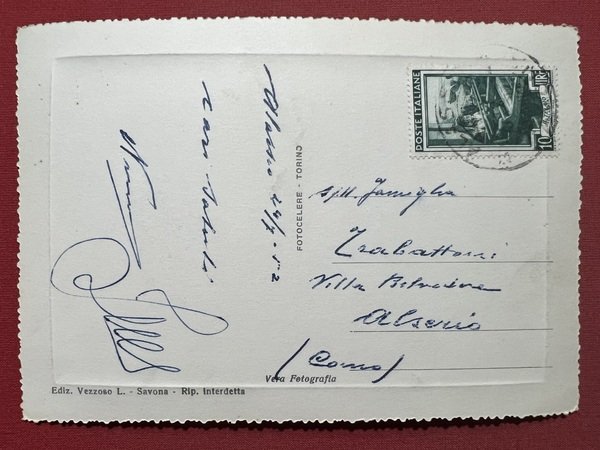 Alassio 24/7 - 52
cari saluti
FOTOCELERE - TORINO
POSTE ITALIANE
10 LIRE
Spett. Famiglia
Trabattoni
Villa Belvedere
Alserio
(Como)
Vera Fotografia
Ediz. Vezzoso L. - Savona - Rip. interdetta